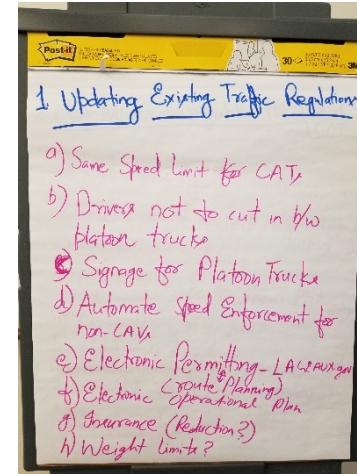 Post-it
30
3M
1. Updating Existing Traffic Regulations
a) Same Speed Limit for CATs
b) Drivers not to cut in b/w
platoon trucks
c) Signage for Platoon Trucks
d) Automate Speed Enforcement for
non-CAVs
e) Electronic Permitting -
(route Planning)
f) Electronic Operational Plan
g) Insurance (Reduction?)
h) Weight limits?